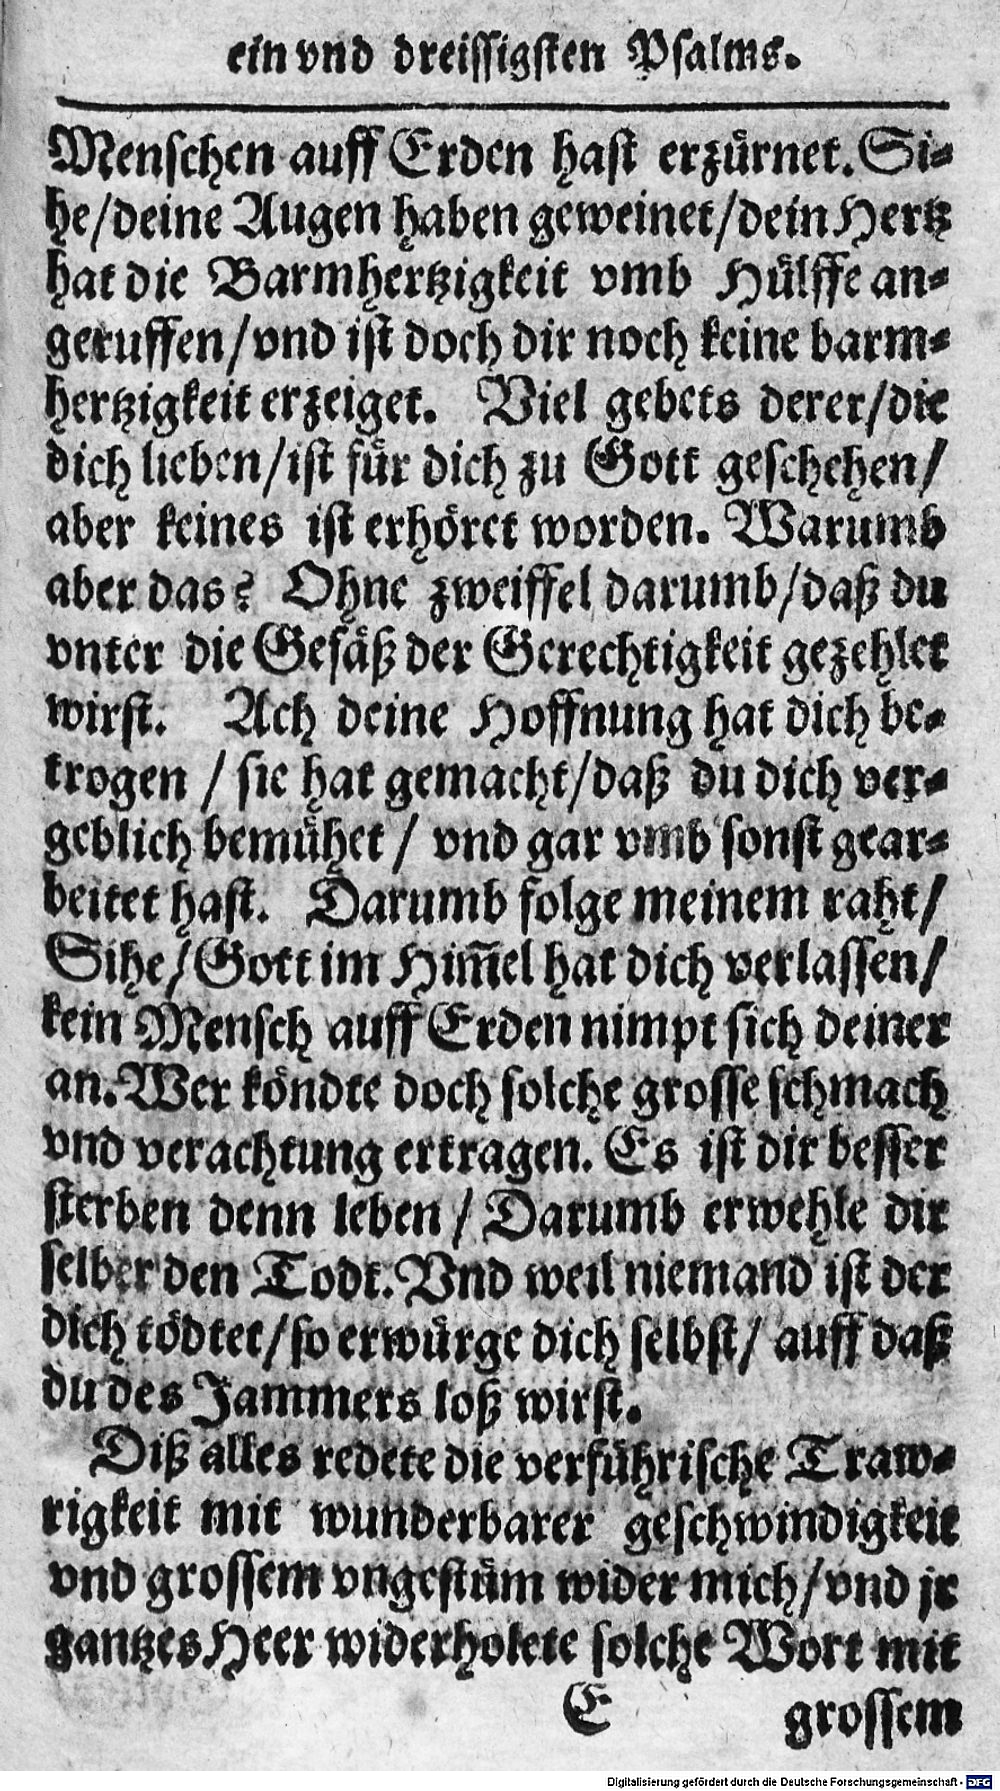 ein vnd dreissigsten Psalms.
Menschen auff Erden hast erzürnet. Si-
he/deine Augen haben geweinet/dein Hertz
hat die Barmhertzigkeit vmb Hülffe an-
geruffen/vnd ist doch dir noch keine barm-
hertzigkeit erzeiget. Viel gebets derer/die
dich lieben/ist für dich zu Gott geschehen/
aber keines ist erhöret worden. Warumb
aber das? Ohne zweiffel darumb/daß du
vnter die Gefäß der Gerechtigkeit gezehlet
wirst. Ach deine Hoffnung hat dich be-
trogen / sie hat gemacht/daß du dich ver-
geblich bemühet / vnd gar vmb sonst gear-
beitet hast. Darumb folge meinem raht/
Sihe/Gott im Him̃el hat dich verlassen/
kein Mensch auff Erden nimpt sich deiner
an. Wer köndte doch solche grosse schmach
vnd verachtung ertragen. Es ist dir besser
sterben denn leben / Darumb erwehle dir
selber den Todt. Vnd weil niemand ist der
dich tödtet/so erwürge dich selbst/ auff daß
du des Jammers loß wirst.
Diß alles redete die verführische Traw-
rigkeit mit wunderbarer geschwindigkeit
vnd grossem vngestüm wider mich/vnd jr
gantzes Heer widerholete solche Wort mit
E grossem
Digitalisierung gefördert durch die Deutsche Forschungsgemeinschaft - DFG